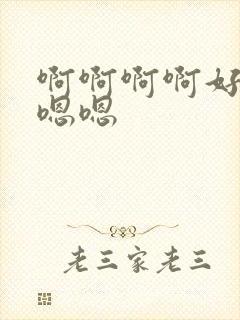 啊啊啊啊好
嗯嗯
老三家老三